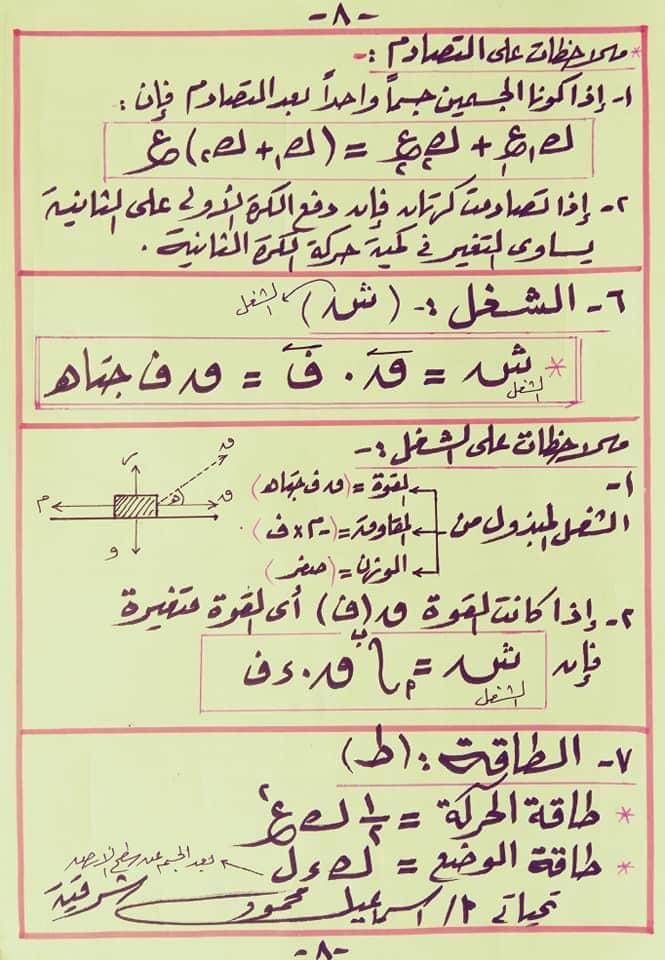 -٨-
* ملاحظات على التصادم :-
١- إذا كونا الجسمين جسماً واحداً بعد التصادم فإن :
ك١ع١ + ك٢ع٢ = (ك١ + ك٢)ع
٢- إذا تصادمت كرتان فإن دفع الكرة الأولى على الثانية
يساوى التغير فى كمية حركة الكرة الثانية .
٦- الشغل :- (ش) الشغل
* ش = ق . ف = ق ف جتاه
الشغل
ملاحظات على الشغل :-
١-
الشغل المبذول من
القوة = (ق ف جتاه)
المقاومة = (-م × ف)
الوزن = (صفر)
ر
ق
ه
ق
م
و
٢- إذا كانت القوة ق (ف) أى القوة متغيرة
فإن ش = ∫ ق . ءف
ب
م
الشغل
٧- الطاقة : (ط)
* طاقة الحركة = ١/٢ ك ع٢
* طاقة الوضع = ك ء ل بعد الجسم عن سطح الأرض
تحياتى م/ اسماعيل محمود شرقية
-٨-